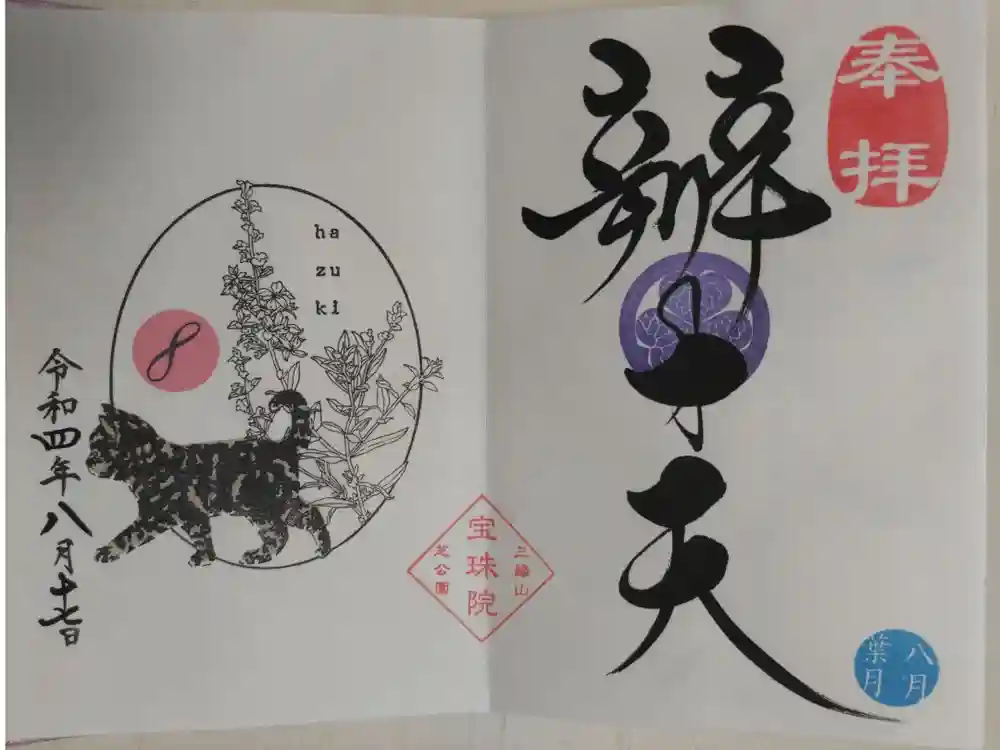 奉拝
辨才天
八月
葉月
三緑山
宝珠院
芝公園
ha
zu
ki
8
令和四年八月十七日